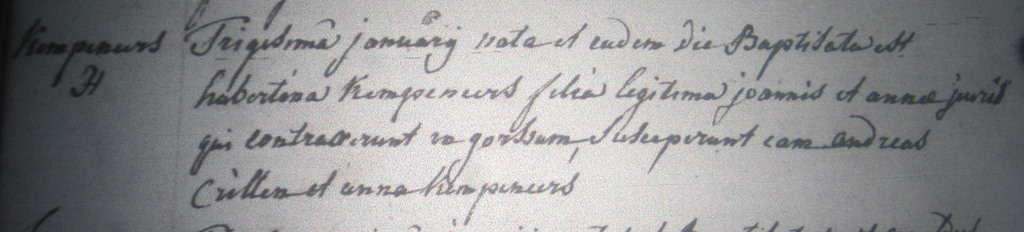 Kempeneurs Trigesimâ januârij nata et eudem die Baptisata est
hubertina Kempeneurs filia legitima joannis et annæ juris
qui contraxerunt in gorssum, susceperunt eam andreas
Crillen et anna kempeneurs